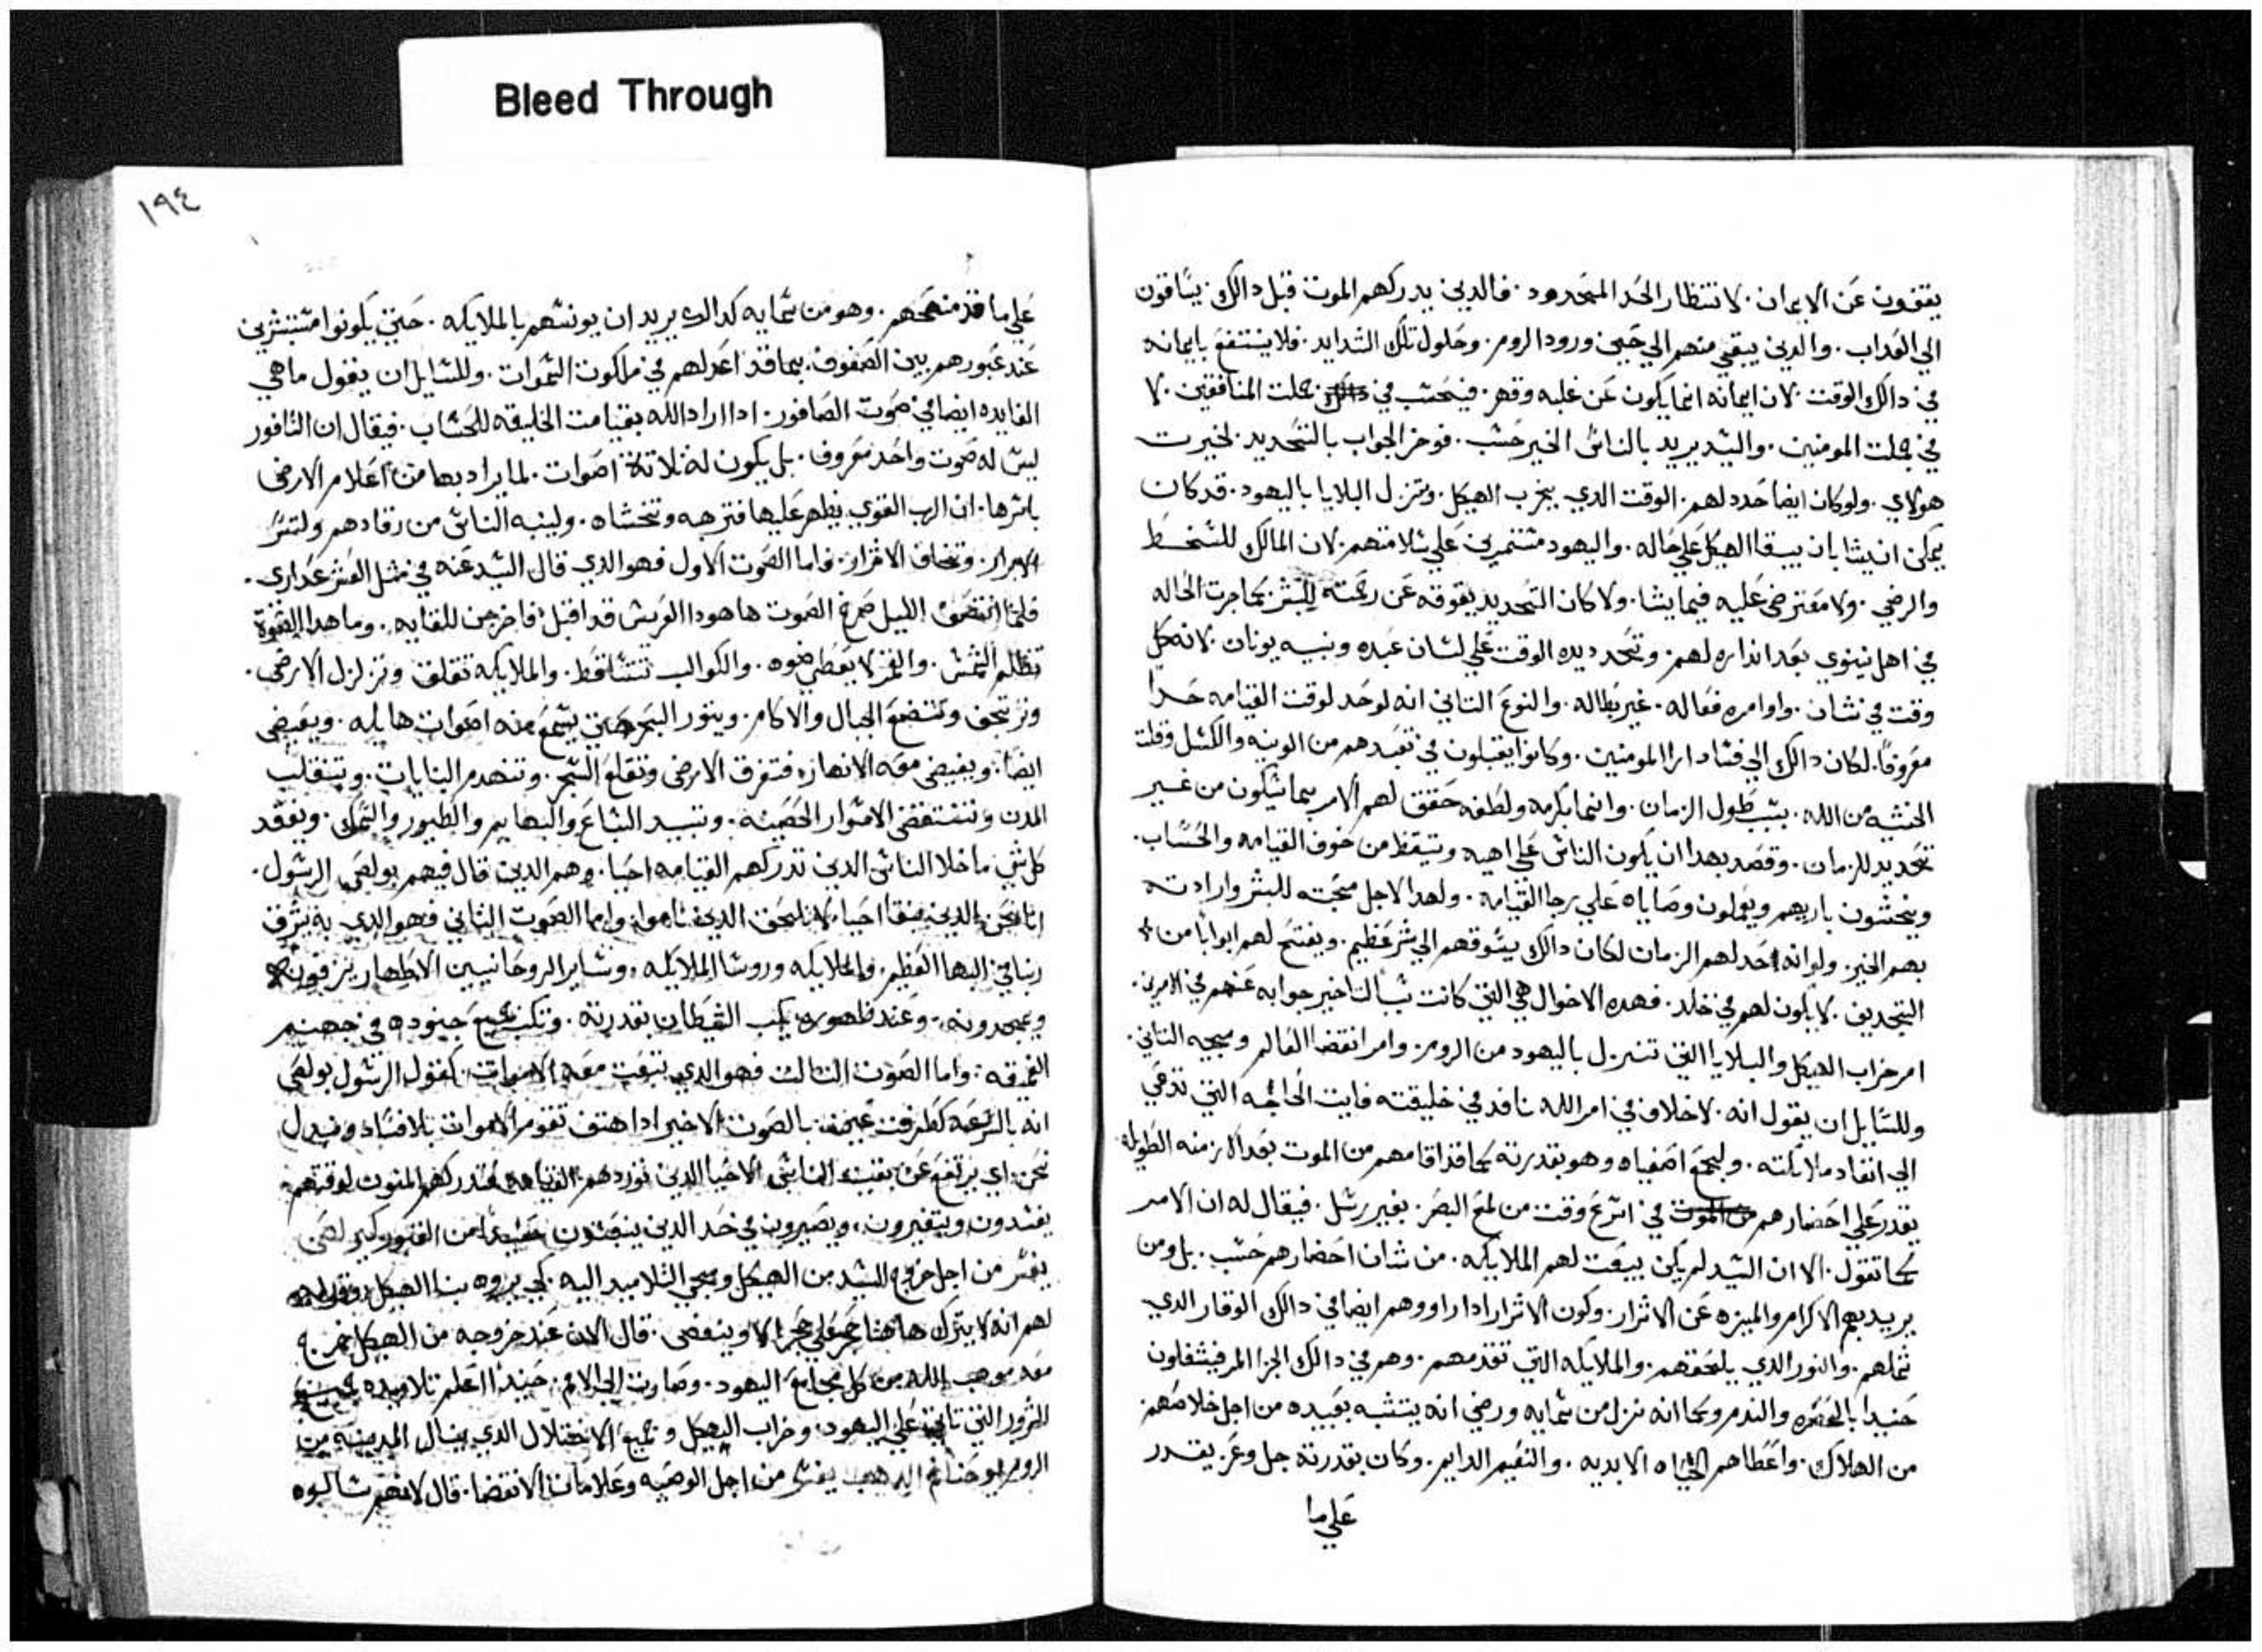 Bleed Through
يقفون عن الايمان. لانتظار الحد المحدود. فالدين يدركهم الموت قبل دالك. يساقون
الي العداب. والدين يبقي منهم الي حين ورود الروم. وحلول تلك الشدايد. فلا ينتفع بايمانه
في دالك الوقت. لان ايمانه انما يكون عن غلبه وقهر. فيحسب في جملت المنافقين. لا
في جملت المومنين. والسيد يريد بالناس الخير حسب. فوخر الجواب بالتحديد. لخيرت
هولاي. ولو كان ايضا حدد لهم. الوقت الدي يخرب الهيكل. وتنزل البلايا باليهود. قد كان
يمكن ان يشا بان يبقا الهيكل علي حاله. واليهود مستمرين علي سلامتهم. لان المالك للسخط
والرضي. ولا معترض عليه فيما يشا. ولا كان التحديد يعوقه عن رحمته للبشر. كما جرت الحاله
في اهل نينوي بعد انداره لهم. وتحديده الوقت علي لسان عبده ونبيه يونان. لانه كل
وقت في شان. واوامره فعاله. غير بطاله. والنوع التاني انه لو حد لوقت القيامه حدا
معروفا. لكان دالك الي فساد ارا المومنين. وكانوا يقبلون في تعبدهم من الونيه والكسل وقلت
الخشيه من الله. بسبب طول الزمان. وانما بكرمه ولطفه حقق لهم الامر بما سيكون من غير
تحديد للزمان. وقصد بهدا ان يكون الناس علي اهبه وتيقظ من خوف القيامه والحساب.
ويخشون باريهم ويعملون وصاياه علي رجا القيامه. ولهدا لاجل محبته للبشر وارادته
بهم الخير. ولو انه احد لهم الزمان لكان دالك يسوقهم الي شر عظيم. ويفتح لهم ابوابا من
التجديف. لا يكون لهم في خلد. فهده الاحوال هي التي كانت سبب تاخير جوابه عنهم في الامرين.
امر خراب الهيكل والبلايا التي تنزل باليهود من الروم. وامر انقضا العالم ومجيه التاني.
وللسايل ان يقول انه. لا خلاف في امر الله نافد في خليقته فايت الحاجه التي تدعي
الي انفاد ملايكته. وليجمع اصفياه وهو بقدرته كما قد اقامهم من الموت بعد الازمنه الطويله
يقدر علي احضارهم في اسرع وقت من لمح البصر. بغير رسل. فيقال له ان الامر
كما تقول. الا ان السيد لم يكن يبعت لهم الملايكه. من شان احضارهم حسب. بل ومن
يريد بهم الاكرام والميزه عن الاشرار. وكون الاشرار ادا راووهم ايضا في دالك الوقار الدي
شملهم. والنور الدي يلحقهم. والملايكه التي تقدمهم. وهم في دالك الجزا المر فيشغلون
حنيدا بالحسره والندم وكما انه نزل من سمايه ورضي انه يتشبه بعبيده من اجل خلاصهم
من الهلاك. واعطاهم الحياه الابديه. والنعيم الدايم. وكان بقدرته جل وعز يقدر
علي ما
١٩٤
علي ما قد منحهم. وهو من سمايه كدالك يريد ان يونسهم بالملايكه. حتي يكونوا مستبشرين
عند عبورهم بين الصفوف. بما قد اعد لهم في ملكوت السموات. وللسايل ان يقول ما هي
الفايده ايضا في صوت الصافور. ادا اراد الله بقيامت الخليقه للحساب. فيقال ان النافور
ليس له صوت واحد معروف. بل يكون له تلاتة اصوات. لما يراد بها من اعلام الارض
باسرها. ان الرب القوي يظهر عليها فترهبه وتخشاه. ولينبه الناس من رقادهم ولتسر
الابرار. وتخاف الاشرار. واما الصوت الاول فهو الدي قال السيد عنه في متل العشر عداري.
فلما انتصف الليل صرخ الصوت ها هودا العريس قد اقبل فاخرجن للقايه. وما هدا القوة
تظلم الشمس. والقمر لا يعطي ضوه. والكواكب تتساقط. والملايكه تقلق وتزلزل الارض.
وترتجف وتتضع الجبال والاكام. ويتور البحر حتي يسمع منه اصوات هايله. ويفيض
ايضا. ويفيض معه الانهار. فتغرق الارض وتقلع الشجر. وتنهدم البنايات. وتنقلب
المدن وتنتقض الاسوار الحصينه. وتبيد السباع والبهايم والطيور والسمك. ويفقد
كل شي ما خلا الناس الدين تدركهم القيامه احيا. وهم الدين قال فيهم بولص الرسول.
انا نحن الدين نبقا احيا. لا نلحق الدين ناموا. واما الصوت التاني فهو الدي به يشرف
ربنا في البها العظيم. والملايكه وروسا الملايكه. وساير الروحانيين الاطهار يزفونه
ويمجدونه. وعند ظهوره يكب الشيطان بقدرته. وتكب جميع جنوده في جهنم
العميقه. واما الصوت التالت فهو الدي تنبعت معه الاموات. كقول الرسول بولص
انه بالسرعه كطرفت عين. بالصوت الاخير ادا هتف تقوم الاموات بلا فساد ونبدل
نحن. اي يرتفع عن بقيت الناس الاحيا الدين توردهم القيامه فتدركهم المنون لوقتهم
يفسدون ويتغيرون. ويصيرون في حد الدين ينبعتون من القبور
يفسر من اجل خروج السيد من الهيكل ومجي التلاميد اليه. كي يروه بنا الهيكل وقوله
لهم انه لا يترك هاهنا حجر علي حجر الا وينقض. قال الان عند خروجه من الهيكل خرج
معه موهب الله من كل مجامع اليهود. وصارت الي الامم. حنيدا اعلم تلاميده بجميع
الشرور التي تاتي علي اليهود. وخراب الهيكل وجميع الاختلال الدي ينال المدينه من
الروم يوحنا فم الدهب يفسر من اجل الوصيه وعلامات الانقضا. قال لانهم سالوه